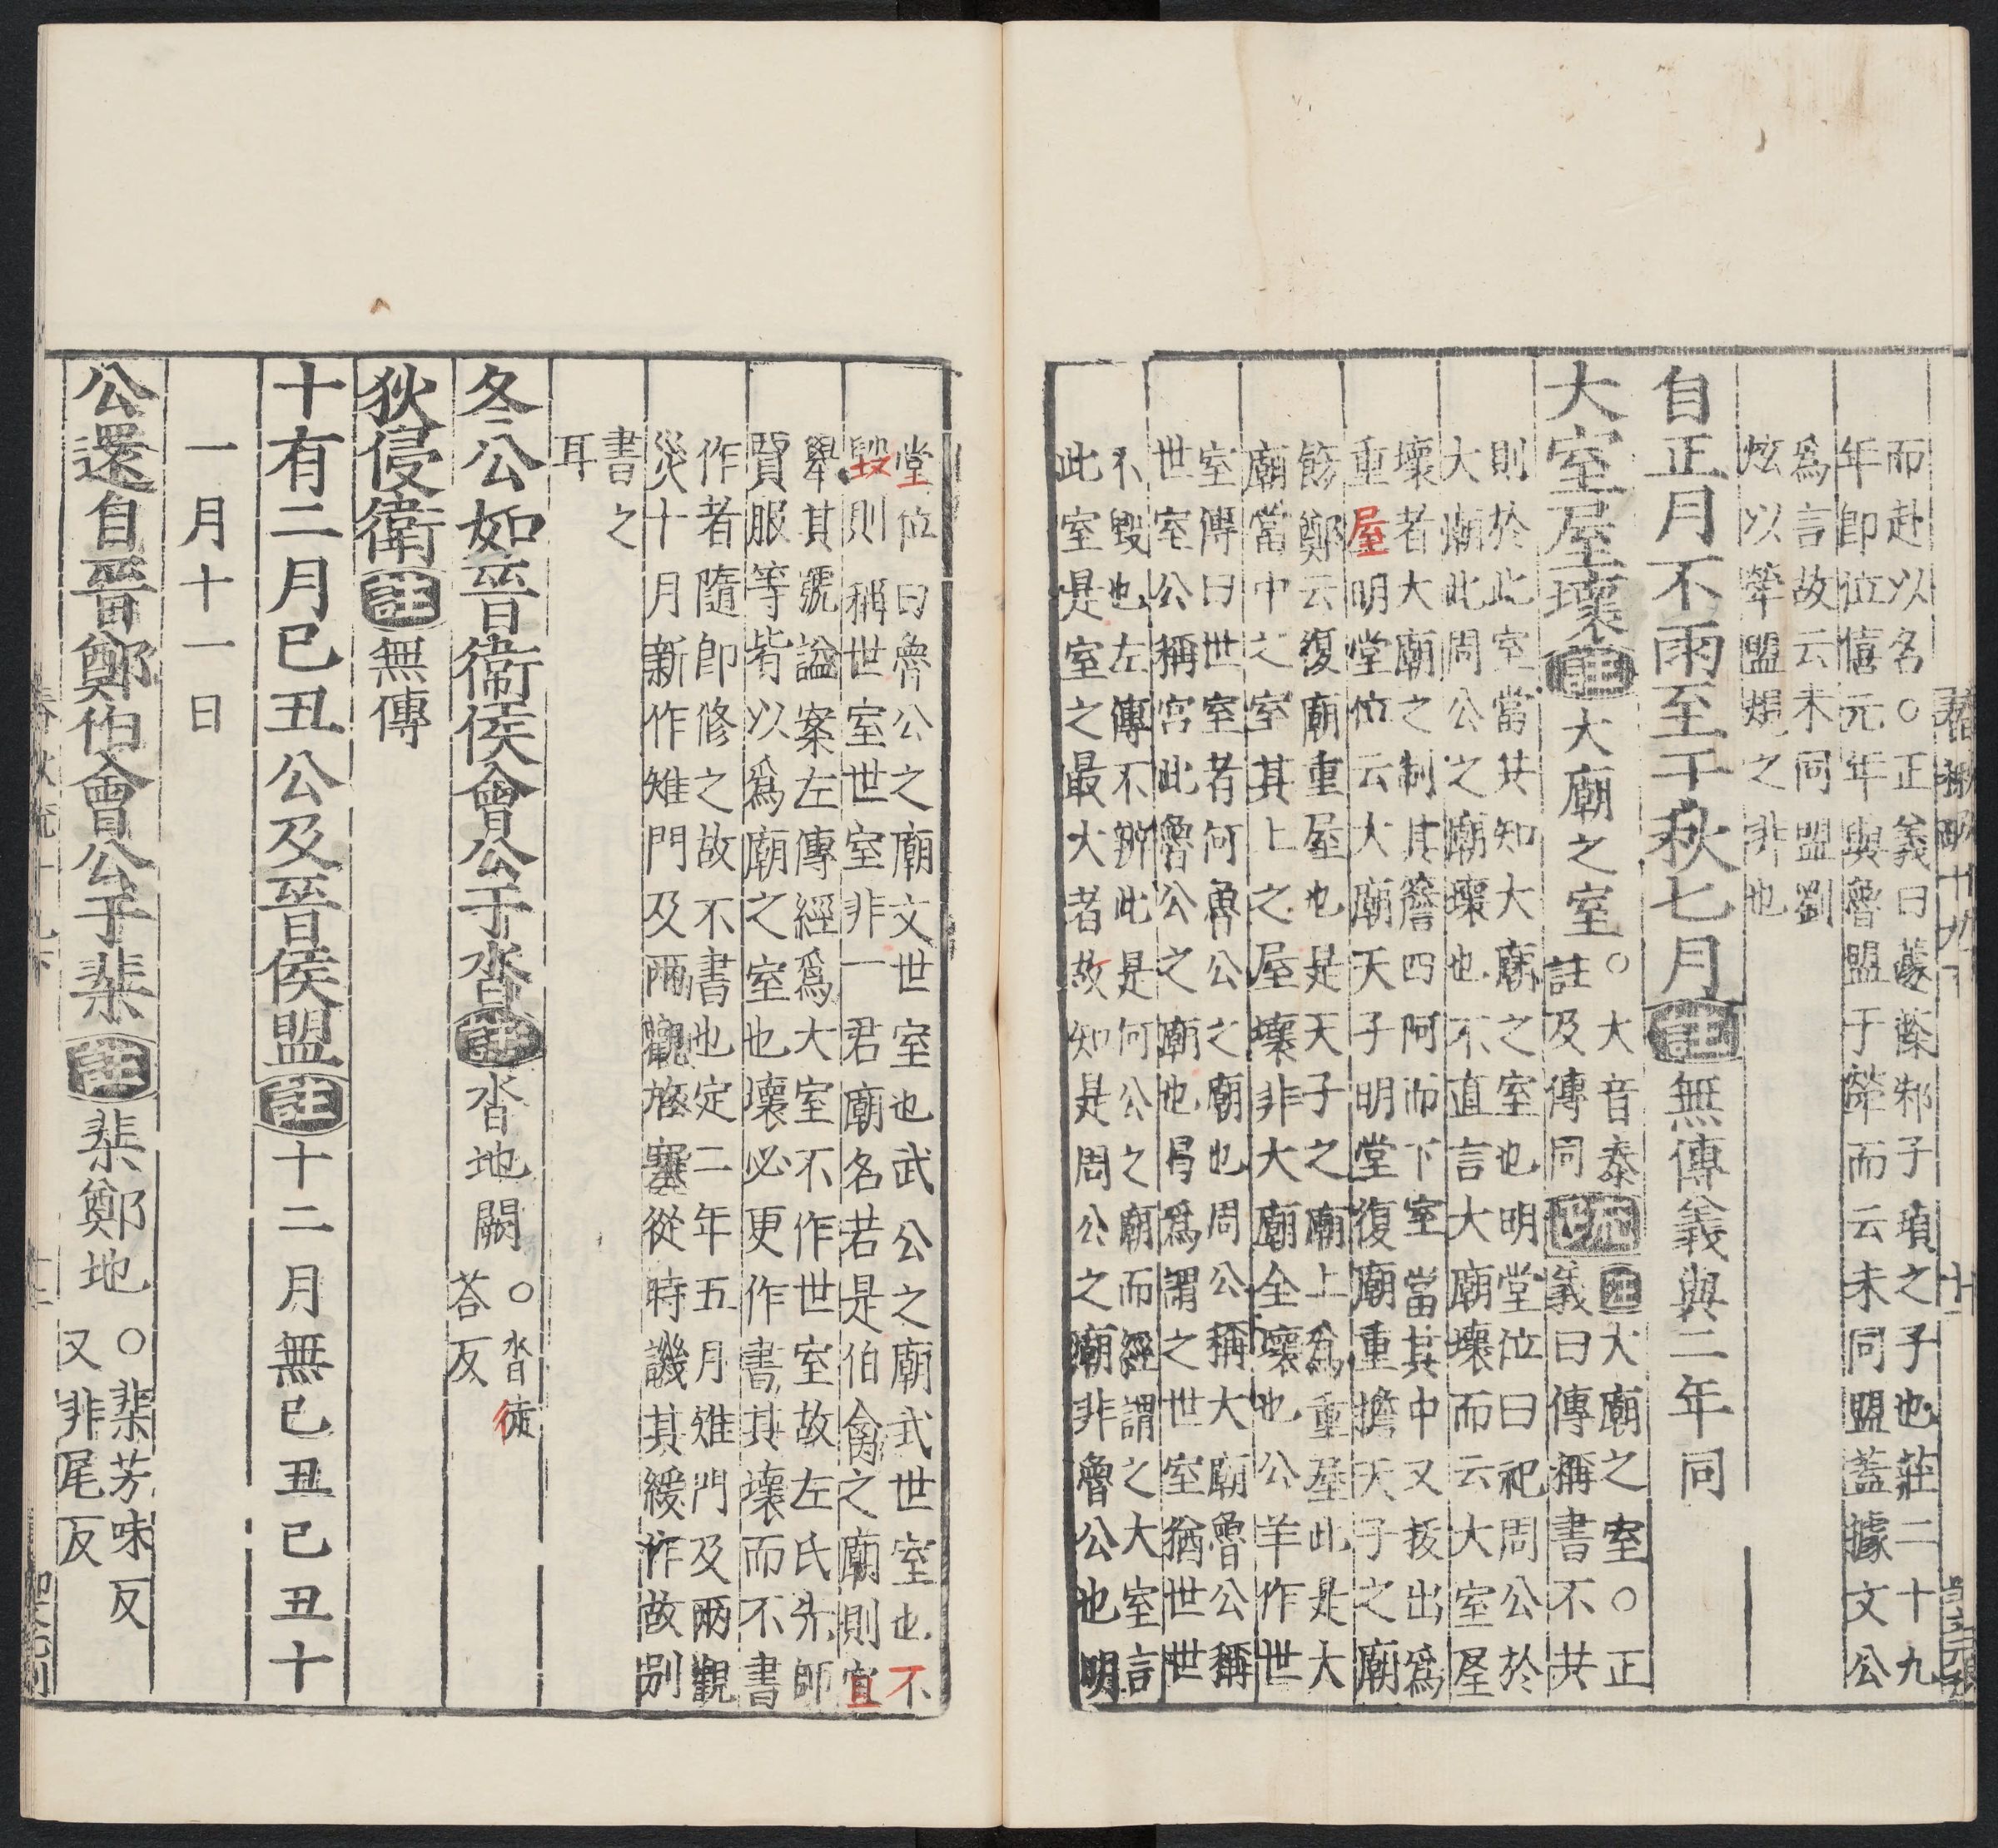 而赴以名○正義曰蘧蒢邾子瑣之子也莊二十九
年卽位僖元年與魯盟于犖而云未同盟蓋據文公
爲言故云未同盟劉
炫以犖盟規之非也
自正月不雨至于秋七月註無傳義與二年同
大室屋壞註大廟之室○大音泰
註及傳同疏註大廟之室○正
義曰傳稱書不共
則於此室當共知大廟之室也明堂位曰祀周公於
大廟此周公之廟壞也不直言大廟壞而云大室屋
壞者大廟之制其簷四阿而下室當其中又拔出爲
重屋明堂位云大廟天子明堂復廟重擔天子之廟
飾鄭云復廟重屋也是天子之廟上爲重屋此是大
廟當中之室其上之屋壞非大廟全壞也公羊作世
室傳曰世室者何魯公之廟也周公稱大廟魯公稱
世室公稱宮此魯公之廟也曷爲謂之世室猶世世
不毀也左傳不辨此是何公之廟而經謂之大室言
此室是室之最大者故知是周公之廟非魯公也明
堂位曰魯公之廟文世室也武公之廟武世室也不
毀則稱世室世室非一君廟名若是伯禽之廟則宜
舉其號謚案左傳經爲大室不作世室故左氏先師
賈服等皆以爲廟之室也壞必更作書其壞而不書
作者隨卽修之故不書也定二年五月雉門及兩觀
災十月新作雉門及兩觀旋塞從時譏其緩作故別
書之
耳
冬公如晉衞侯會公于沓註沓地闕○沓徒
荅反
狄侵衞註無傳
十有二月已丑公及晉侯盟註十二月無已丑已丑十
一月十一日
公還自晉鄭伯會公于棐註棐鄭地○棐芳味反
又非尾反